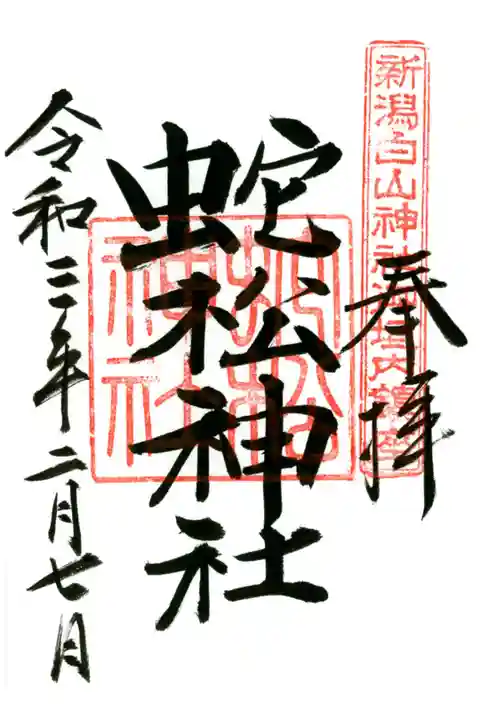 新潟白山神社瑞垣内鎮座
奉拝
蛇松神社
蛇松神社
令和三年二月七日